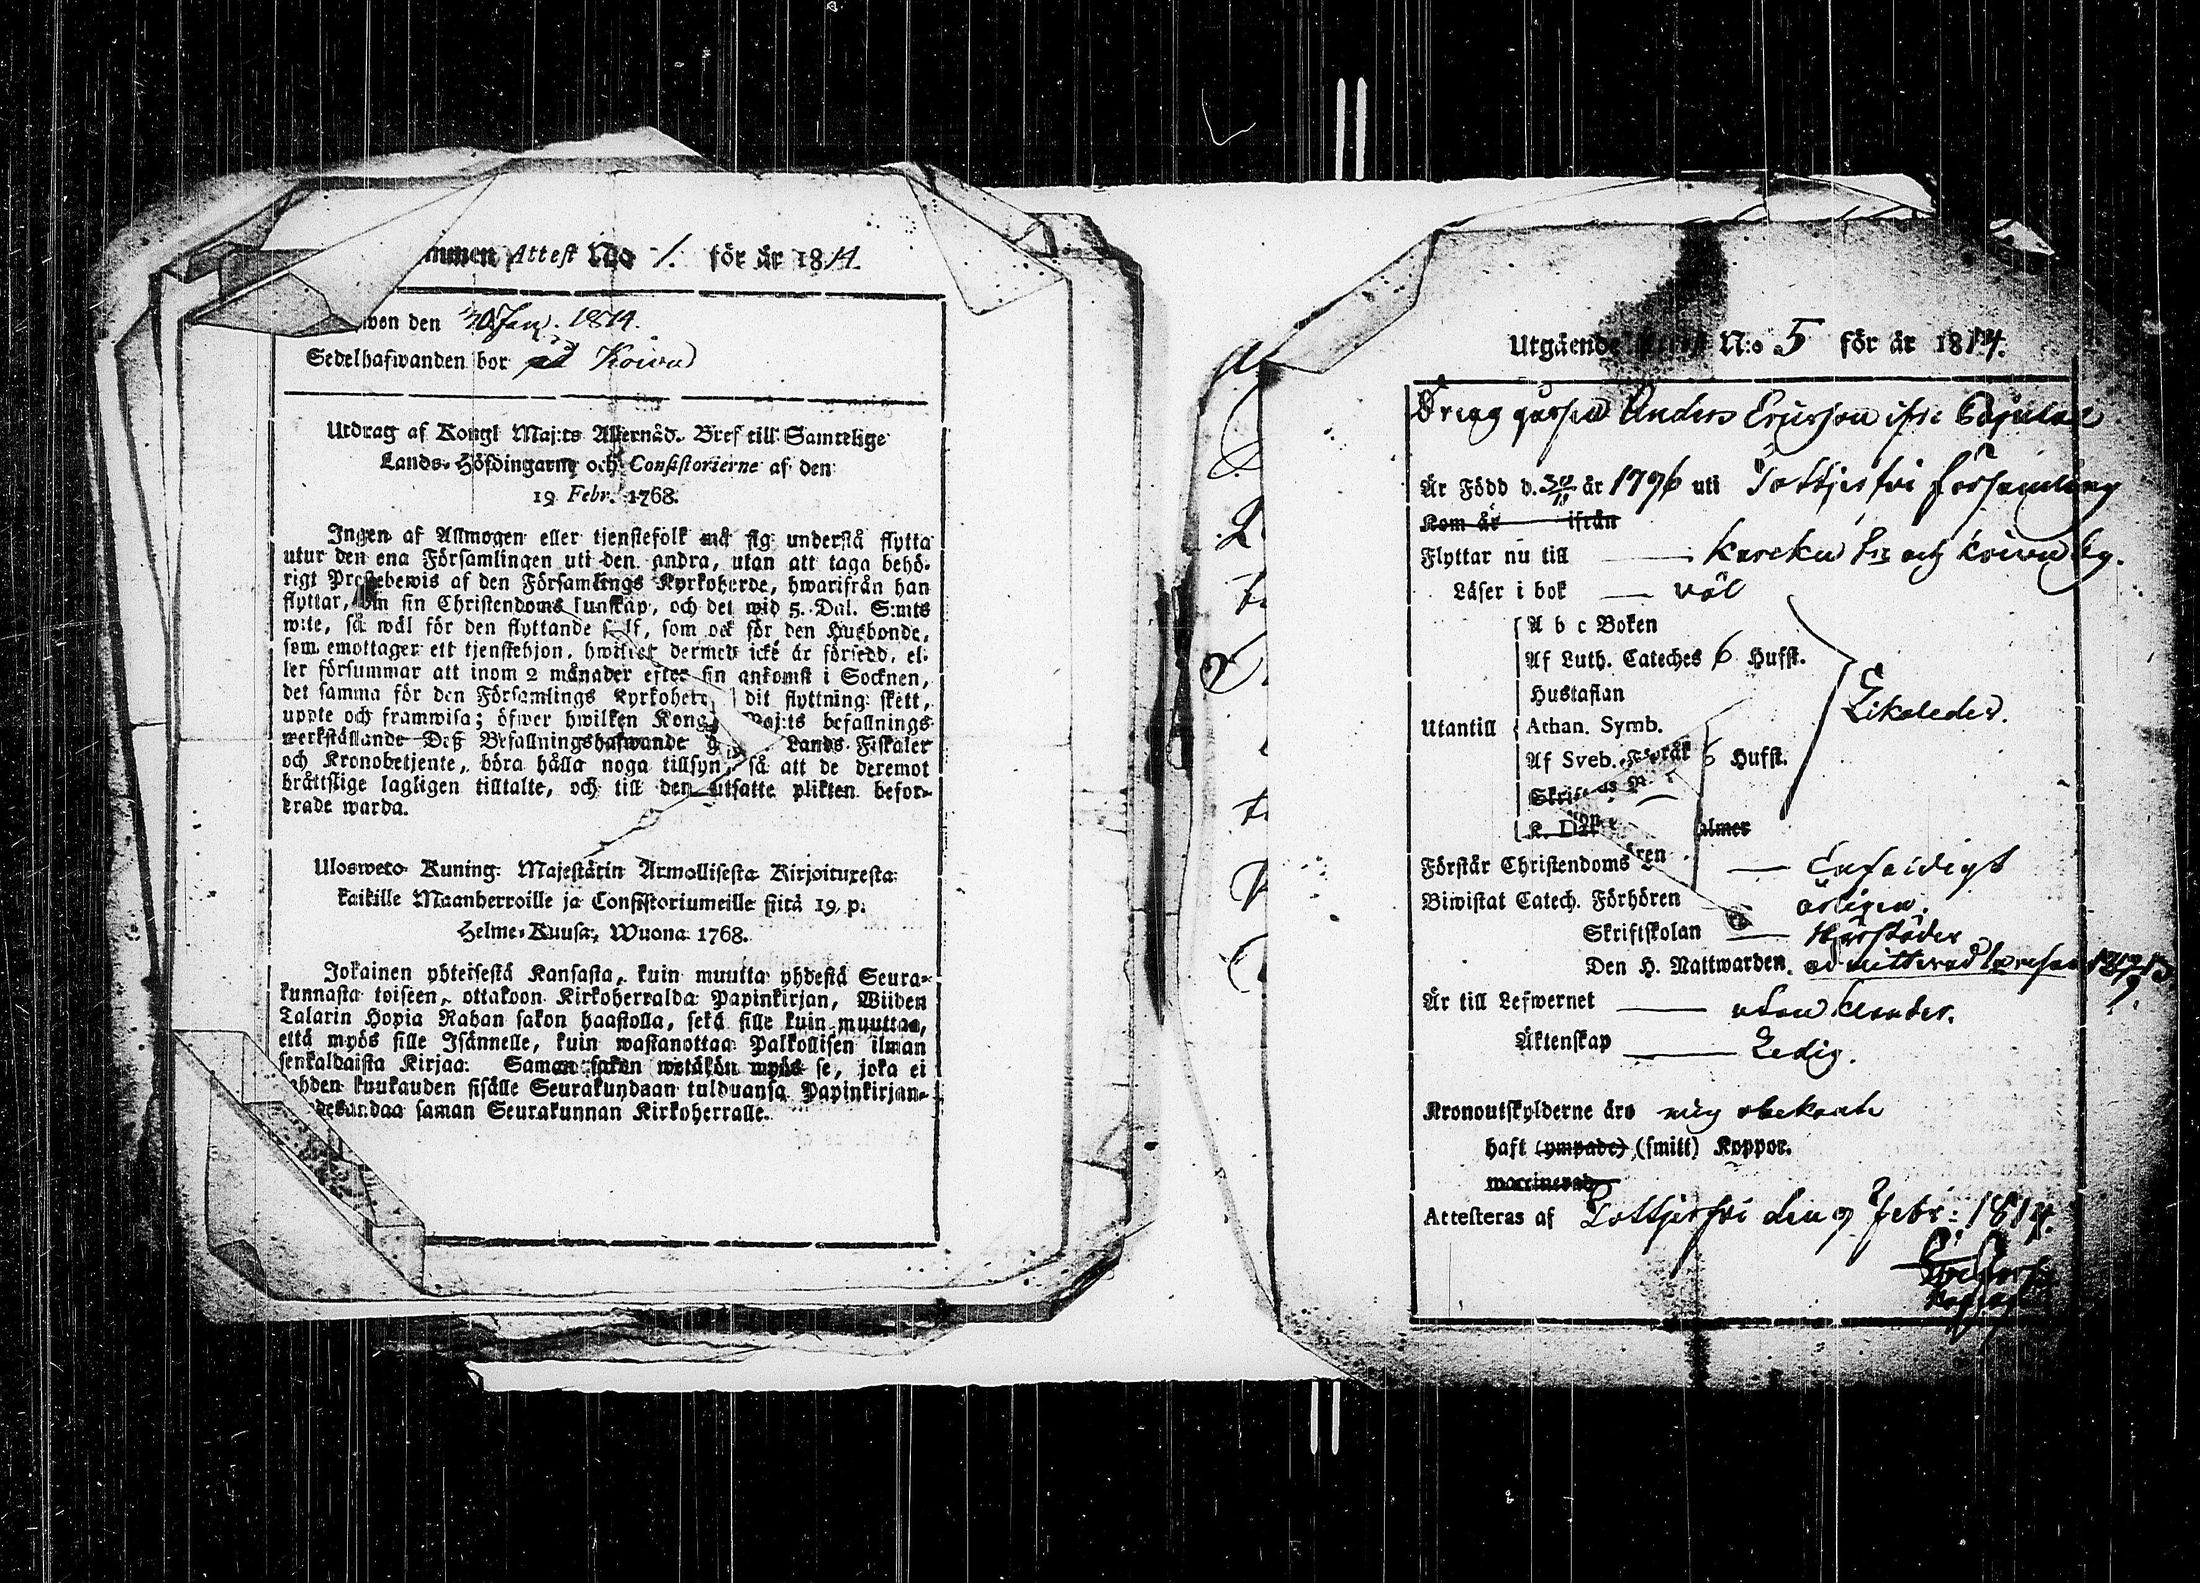 mmen Attest No 1. för år 1814.
won den 30 Jan. 1814.
Sedelhafwanden bor på Koivu
Utdrag af Kongl Maj:ts Allernåd. Bref till Samtelige
Lands-Höfdingarne och Consistorierne af den
19 Febr. 1768.
Ingen af Allmogen eller tjenstefolk må sig understå flytta
utur den ena Församlingen uti den andra, utan att taga behö-
rigt Prestebewis af den Församlings Kyrkoherde, hwarifrån han
flyttar, om sin Christendoms kunskap, och det wid 5. Dal. S:mts
wite, så wäl för den flyttande sjelf, som ock för den Husbonde,
som emottager ett tjenstehjon, hwilket dermed icke är försedd, el-
ler försummar att inom 2 månader efter sin ankomst i Socknen,
det samma för den Församlings Kyrkoherde dit flyttning skett,
uppte och framwisa; öfwer hwilken Kongl Maj:ts befallnings
werkställande Deß Befallningshafwande Lands Fiskaler
och Kronobetjente, böra hålla noga tillsyn, så att de deremot
bråttslige lagligen tilltalte, och till den utsatte plikten befor-
drade warda.
Uloswето Kuning. Majestätin Armollisesta Kirjoituxesta
kaikille Maanherroille ja Consistoriumeille siitä 19. p.
Helme-Kuusa, Wuona 1768.
Jokainen yhteisestä Kansasta, kuin muutta yhdestä Seura-
kunnasta toiseen, ottakoon Kirkoherralda Papinkirjan, Wiiden
Talarin Hopia Rahan sakon haastolla, sekä sille kuin muuttaa,
että myös sille Isännelle, kuin wastanottaa Palkollisen ilman
senkaldaista Kirjaa. Saman sakon wetäkön myös se, joka ei
kahden kuukauden sisälle Seurakundaan tulduansa Papinkirjan-
desandaa saman Seurakunnan Kirkoherralle.
Utgående N:o 5 för år 1814.
Dräng Anders Ericsson ifrå
Är Född d. 30/11 år 1796 uti Tottjerfvi församling
Kom år ifrån
Flyttar nu till Karcku och Koivu by.
Läser i bok väl
A b c Boken
Af Luth. Cateches 6 Hufst.
Hustaflan
Utantill Athan. Symb.
Likaledes.
Af Sveb. Förspråk 6 Hufst.
K.
Förstår Christendoms Enfaldigt
Biwistat Catech. Förhören årligen.
Skriftskolan
Den H. Nattwarden admitterad
Är till Lefwernet utan klander.
Äktenskap Ledig.
Kronoutskylderne äro mig obekante
haft (ympade) (smitt) Koppor.
waccinerad
Attesteras af Tottjerfvi den 9 Febr: 1814.